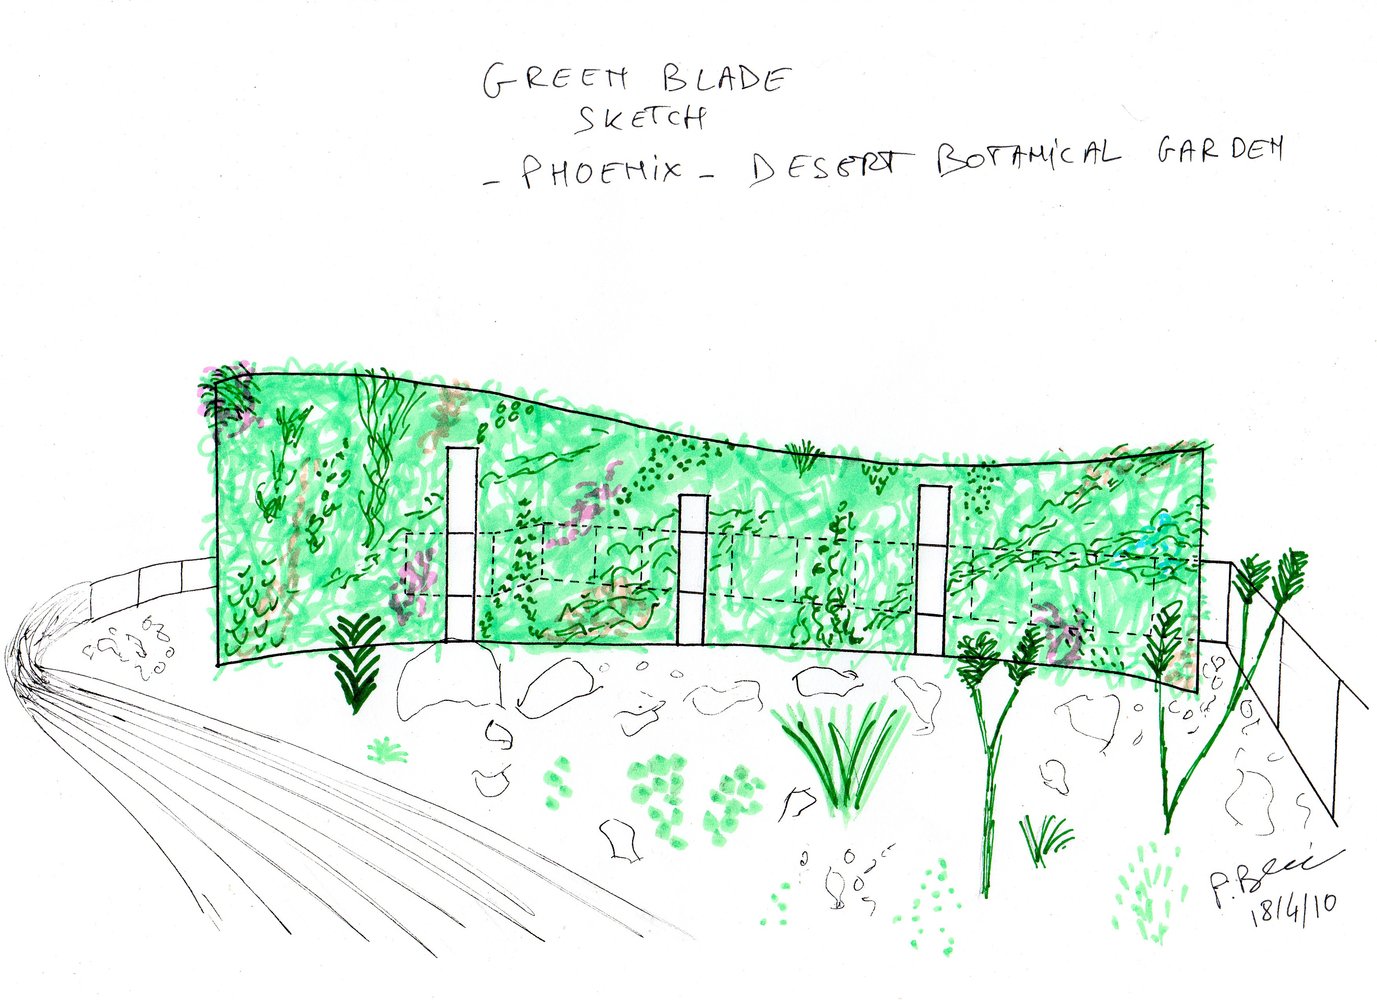 GREEN BLADE
SKETCH
- PHOENiX - DESERT BOTANiCAL GARDEN
P. Blanc
18/4/10